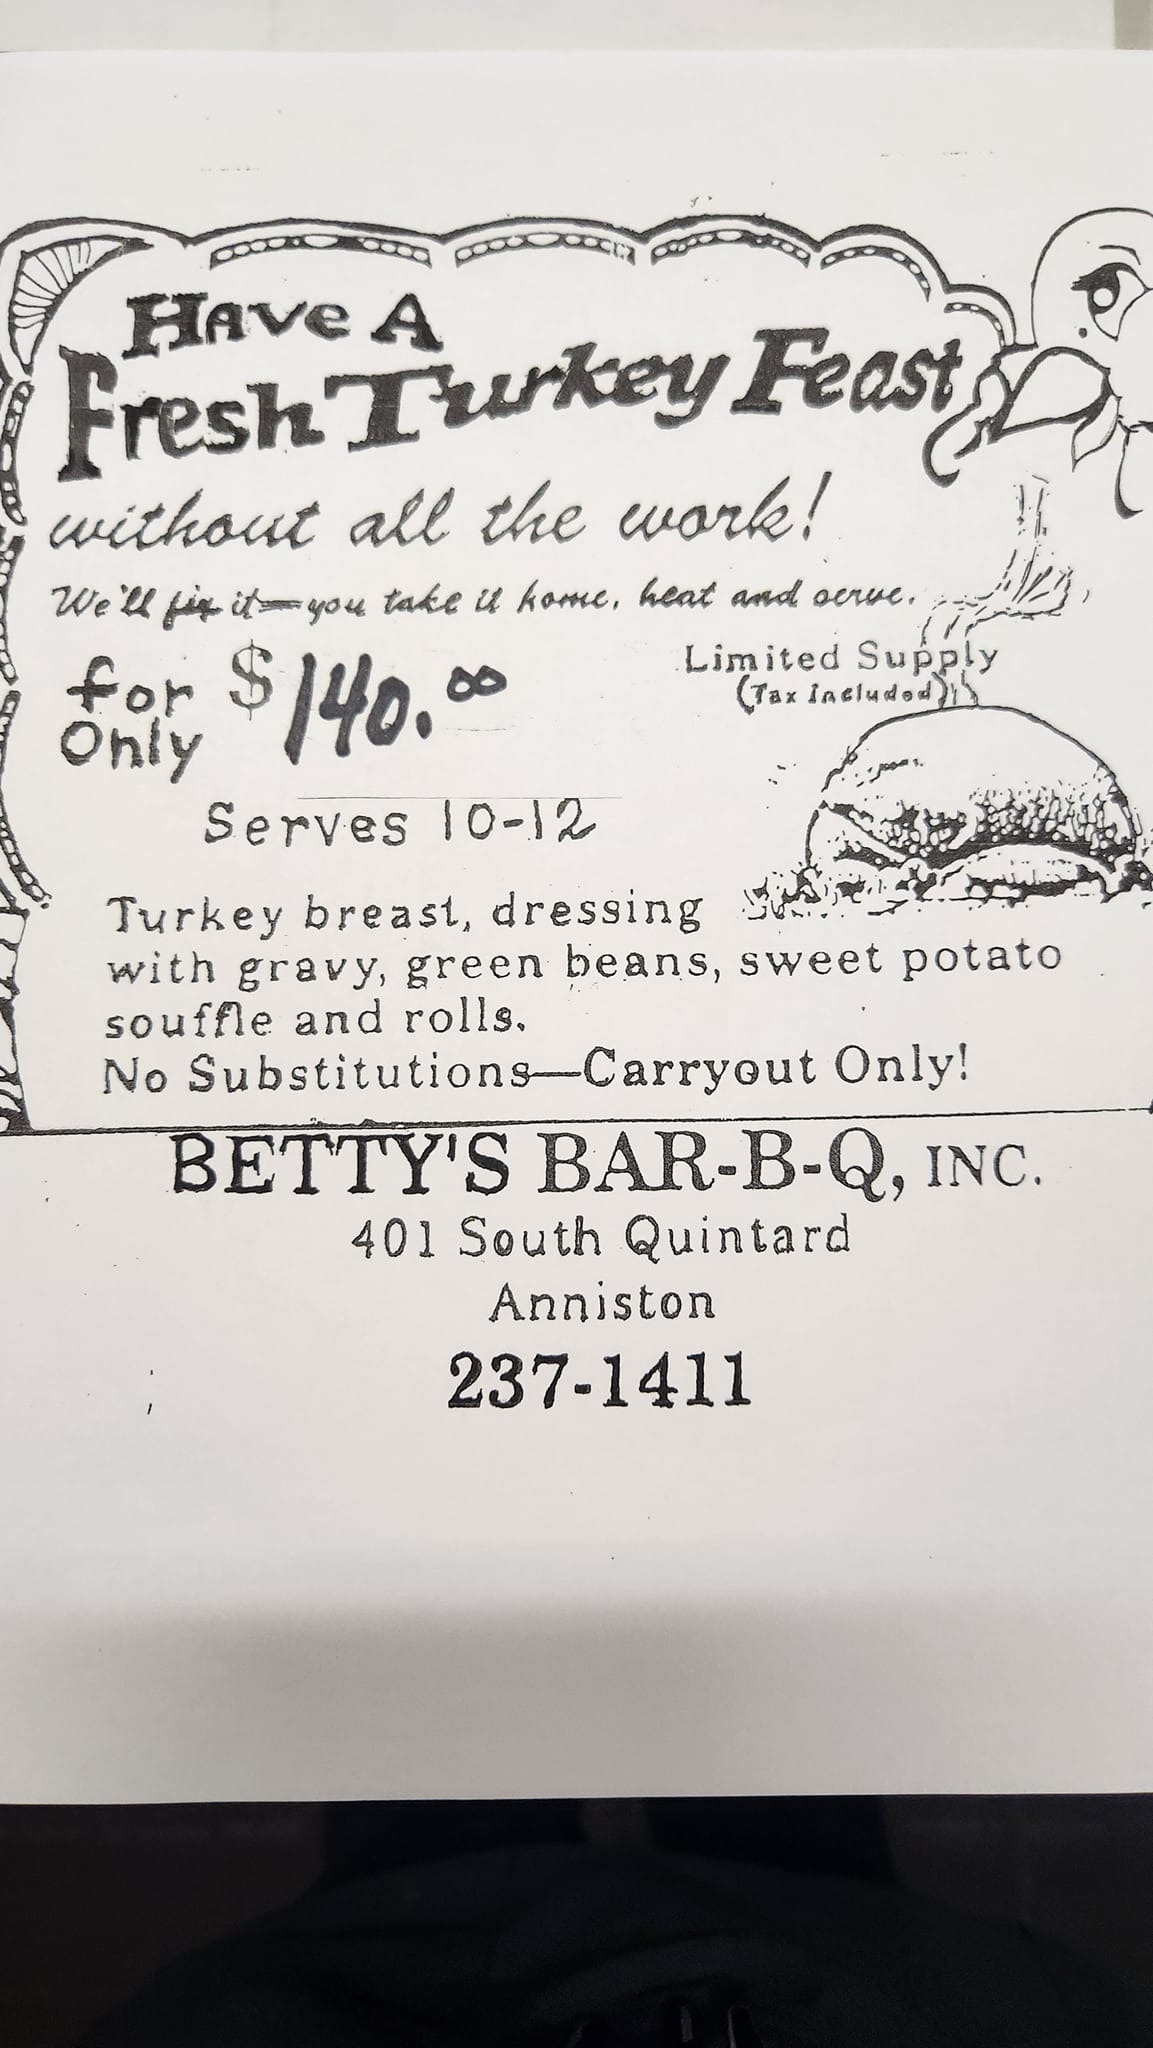 Have A
Fresh Turkey Feast
without all the work!
We'll fix it—you take it home, heat and serve.
for
Only
$140.00
Limited Supply
(Tax included)
Serves 10-12
Turkey breast, dressing
with gravy, green beans, sweet potato
souffle and rolls.
No Substitutions—Carryout Only!
BETTY'S BAR-B-Q, INC.
401 South Quintard
Anniston
237-1411